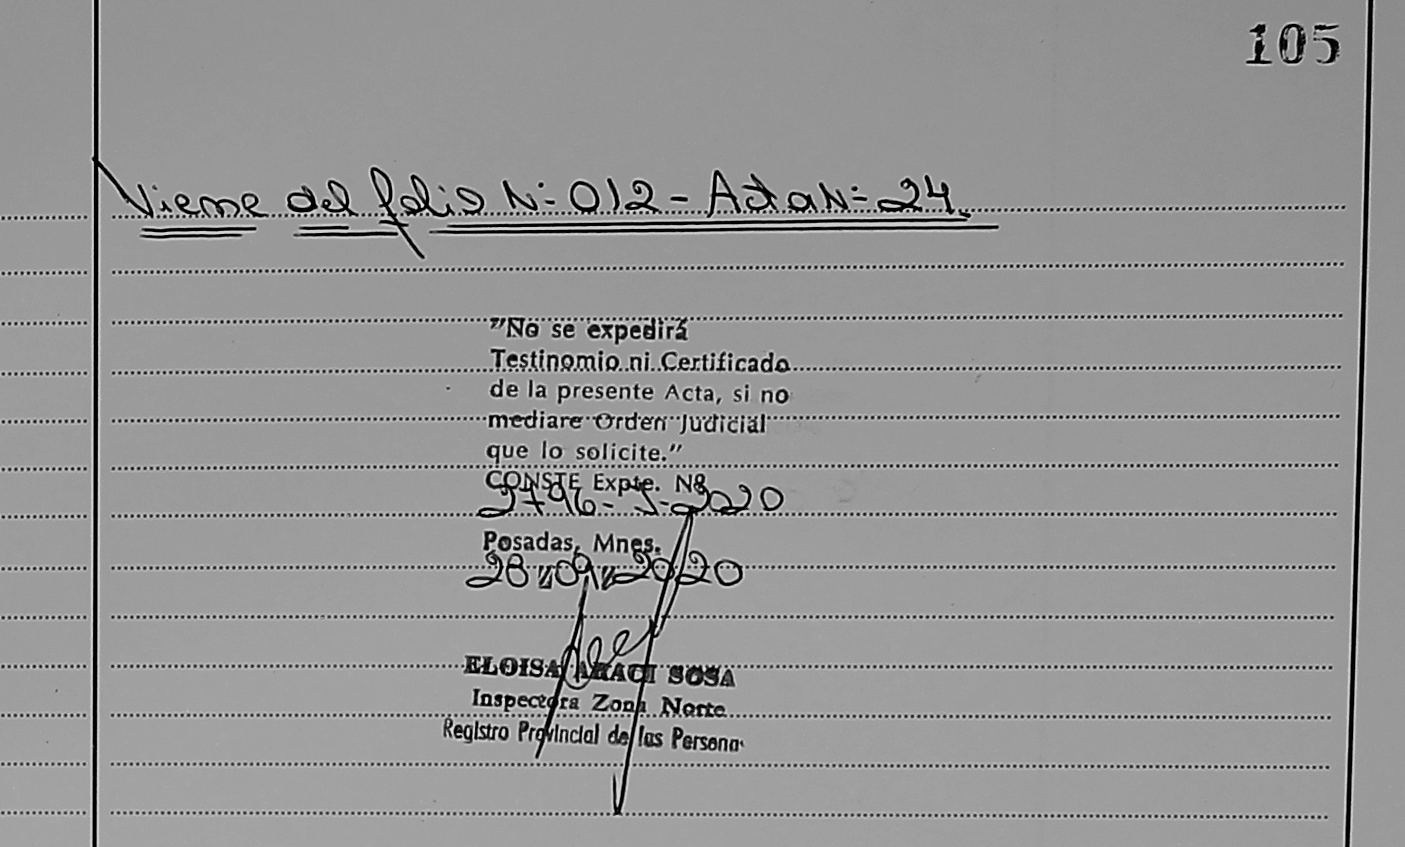 105
Viene del folio N:012 - Acta N:-24.
"No se expedirá
Testinomio ni Certificado
de la presente Acta, si no
mediare Orden Judicial
que lo solicite."
CONSTE Expte. Nº
2796-J-2020
Posadas, Mnes.
28/09/2020
ELOISA ARACI SOSA
Inspectora Zona Norte
Registro Provincial de las Persona